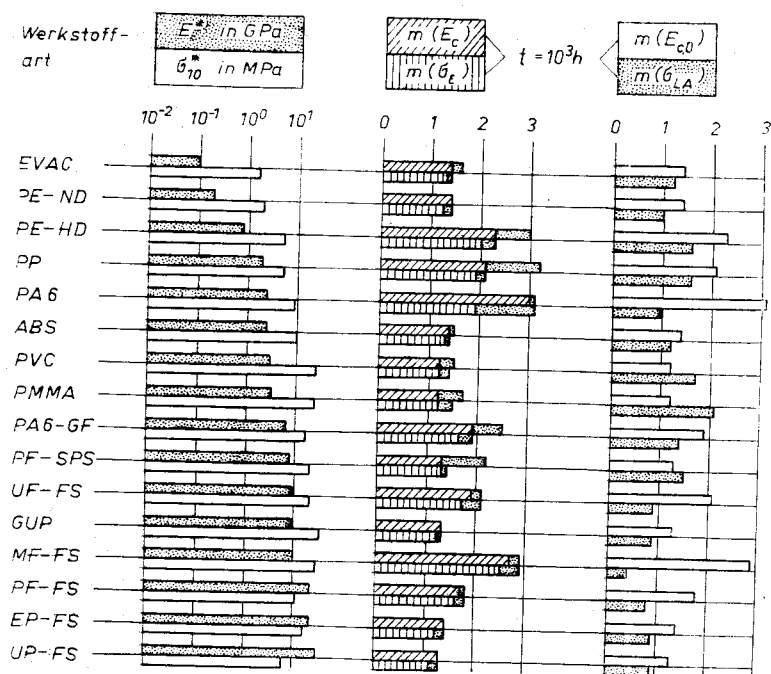 Werkstoff-
art
E_ε^* in GPa
σ_10^* in MPa
m(E_c)
m(σ_ε)
t = 10³h
m(E_c,0)
m(σ_LA)
10⁻² 10⁻¹ 10⁰ 10¹
0 1 2 3
0 1 2 3
EVAC
PE-ND
PE-HD
PP
PA6
ABS
PVC
PMMA
PA6-GF
PF-SPS
UF-FS
GUP
MF-FS
PF-FS
EP-FS
UP-FS